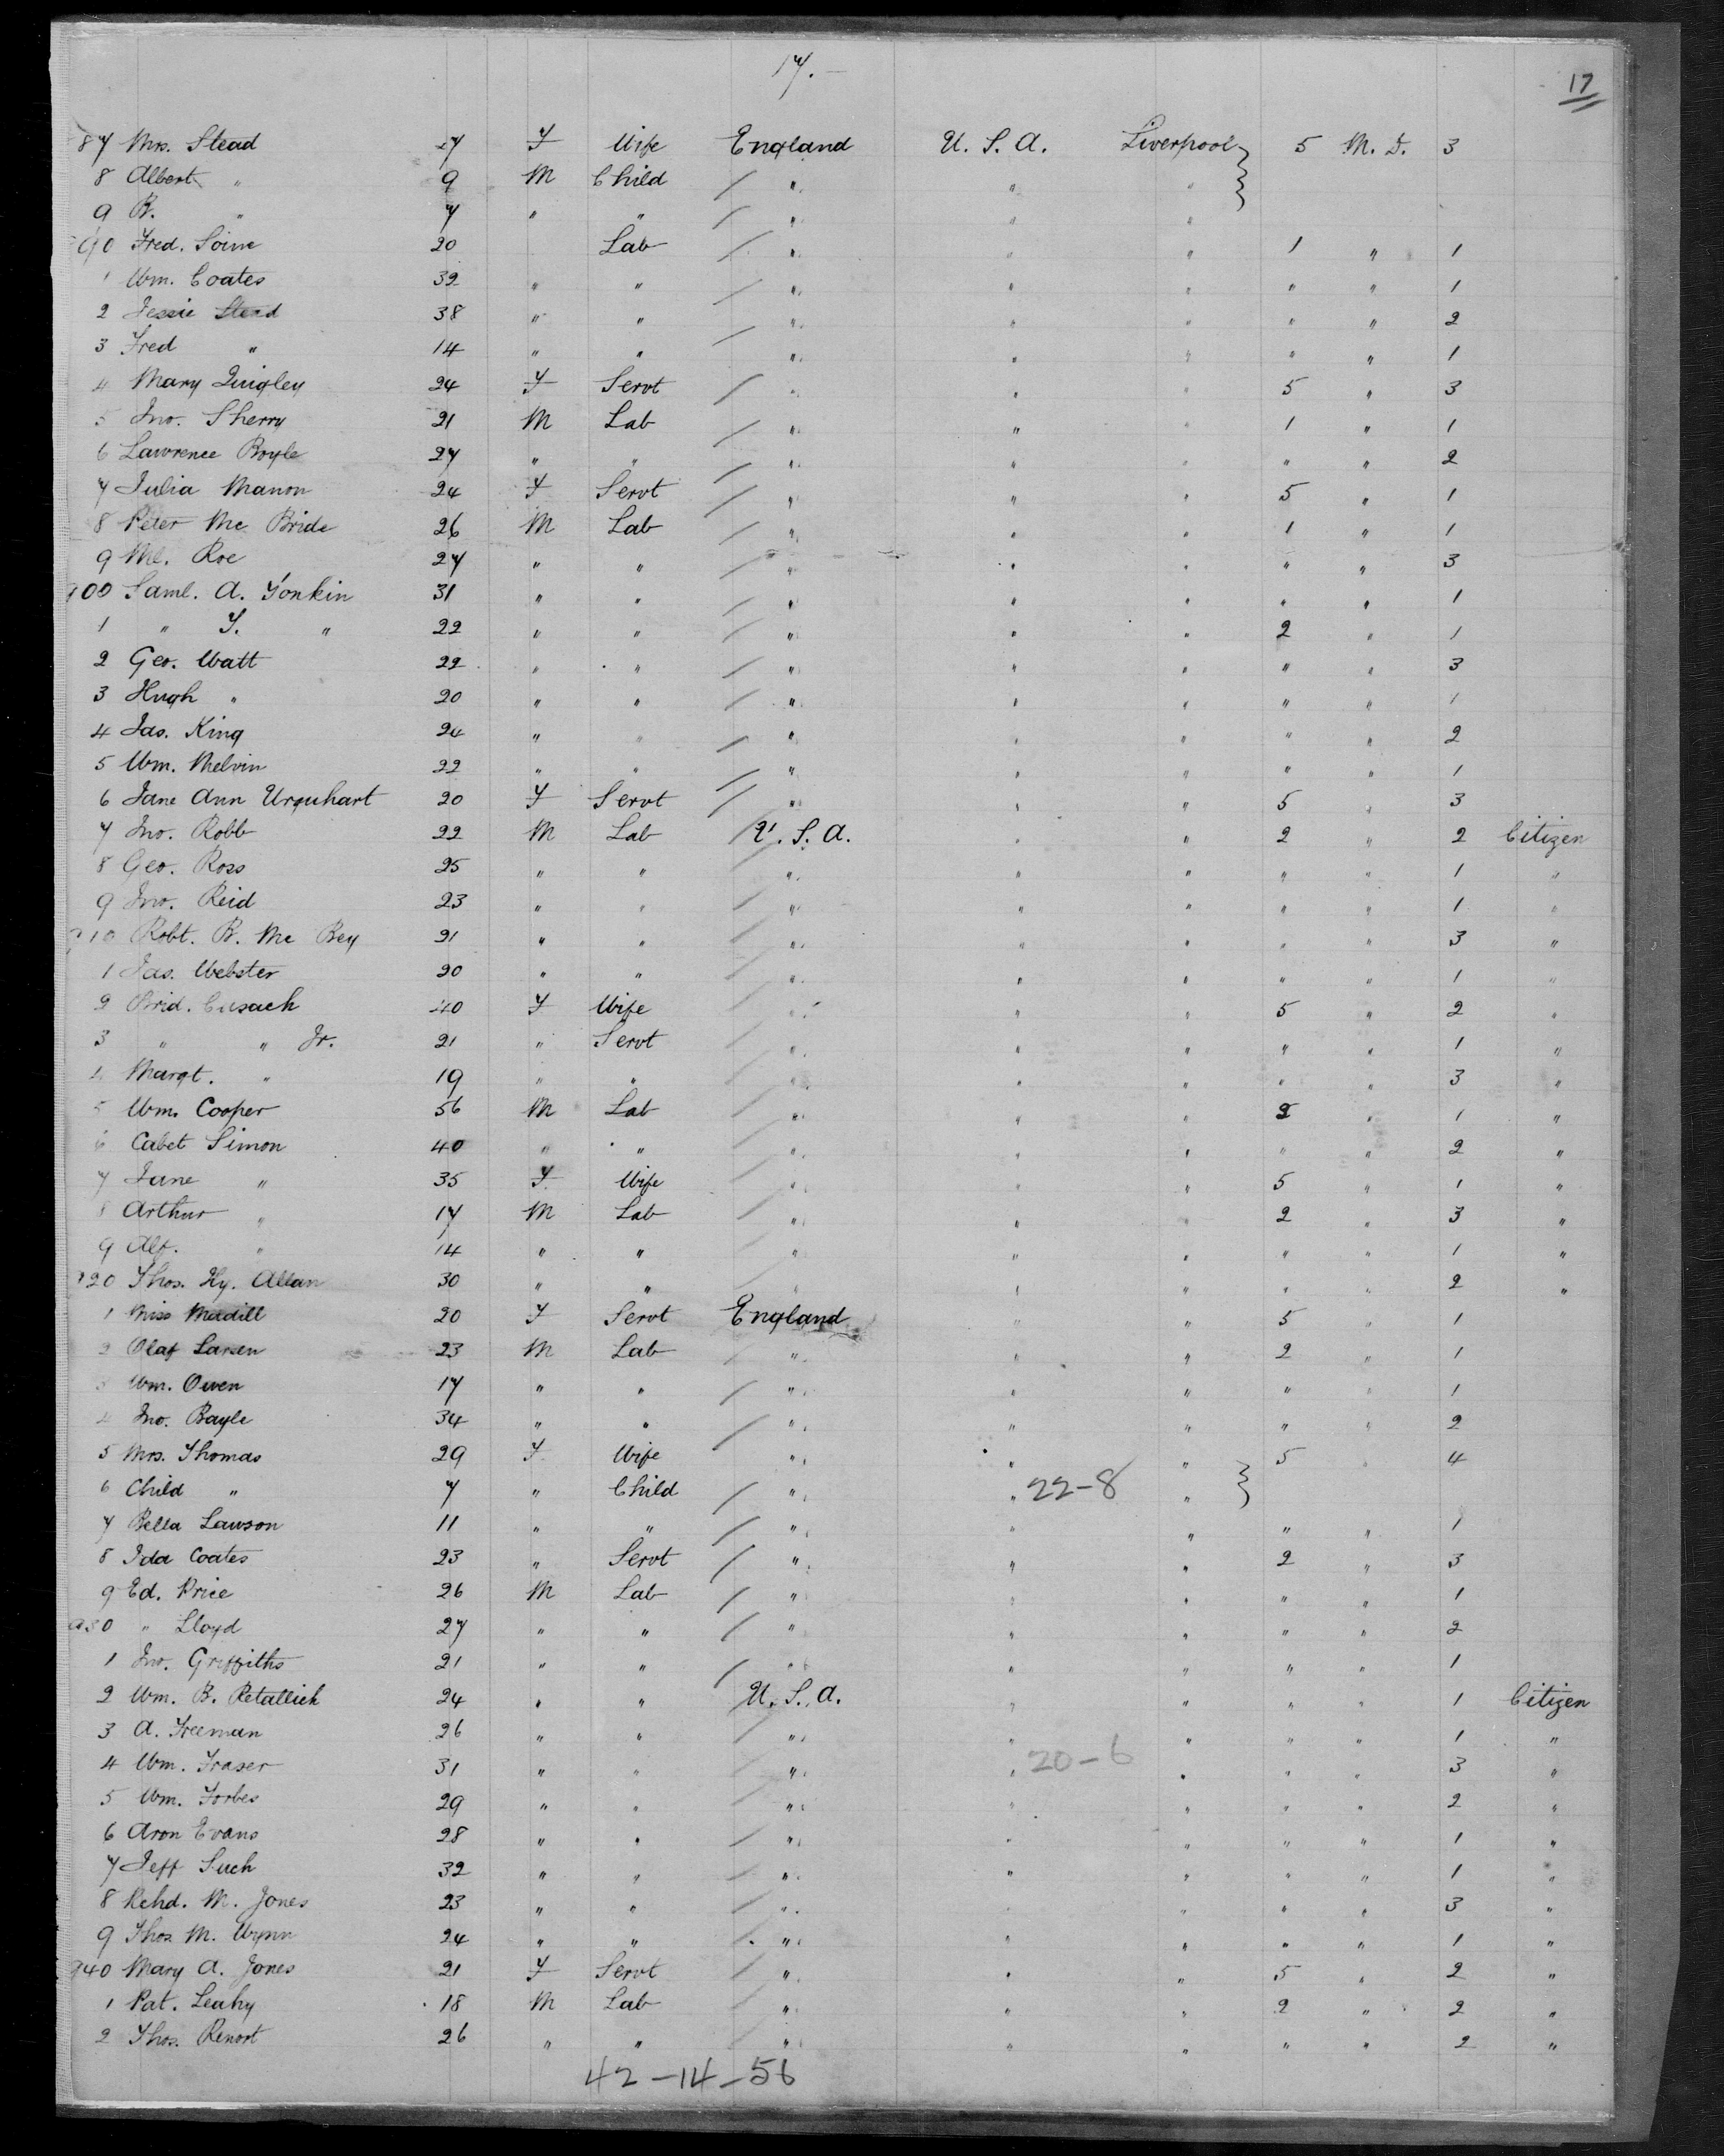 17.-
17
87 Mrs. Stead 27 F Wife England U. S. A. Liverpool 5 M. D. 3
8 Albert " 9 M Child " " "
9 B. " 7 " " " " "
90 Fred. Soine 20 Lab " " " 1 " 1
1 Wm. Coates 32 " " " " " " " 1
2 Jessie Stead 38 " " " " " " " 2
3 Fred " 14 " " " " " " " 1
4 Mary Quigley 24 F Servt " " " 5 " 3
5 Jno. Sherry 21 M Lab " " " 1 " 1
6 Lawrence Boyle 27 " " " " " " " 2
7 Julia Manon 24 F Servt " " " 5 " 1
8 Peter Mc Bride 26 M Lab " " " 1 " 1
9 Ml. Roe 27 " " " " " " " 3
900 Saml. A. Tonkin 31 " " " " " " " 1
1 " T. " 22 " " " " " 2 " 1
2 Geo. Watt 22 " " " " " " " 3
3 Hugh " 20 " " " " " " " 1
4 Jas. King 24 " " " " " " " 2
5 Wm. Melvin 22 " " " " " " " 1
6 Jane Ann Urquhart 20 F Servt " " " 5 " 3
7 Jno. Robb 22 M Lab U. S. A. " " 2 " 2 Citizen
8 Geo. Ross 25 " " " " " " " 1 "
9 Jno. Reid 23 " " " " " " " 1 "
910 Robt. B. Mc Bey 21 " " " " " " " 3 "
1 Jas. Webster 20 " " " " " " " 1 "
2 Brid. Cusack 40 F Wife " " " 5 " 2 "
3 " " Jr. 21 " Servt " " " " " 1 "
4 Margt. " 19 " " " " " " " 3 "
5 Wm. Cooper 56 M Lab " " " 2 " 1 "
6 Cabet Simon 40 " " " " " " " 2 "
7 Jane " 35 F Wife " " " 5 " 1 "
8 Arthur " 17 M Lab " " " 2 " 3 "
9 Alf. " 14 " " " " " " " 1 "
920 Thos. Hy. Allan 30 " " " " " " " 2 "
1 Miss Madill 20 F Servt England " " 5 " 1
2 Olaf Larsen 23 M Lab " " " 2 " 1
3 Wm. Owen 17 " " " " " " " 1
4 Jno. Bayle 34 " " " " " " " 2
5 Mrs. Thomas 29 F Wife " " " 5 " 4
6 Child " 7 " Child " " 22-8 "
7 Bella Lawson 11 " " " " " " " 1
8 Ida Coates 23 " Servt " " " 2 " 3
9 Ed. Price 26 M Lab " " " " " 1
930 " Lloyd 27 " " " " " " " 2
1 Jno. Griffiths 21 " " " " " " " 1
2 Wm. B. Retallick 24 " " U. S. A. " " " " 1 Citizen
3 A. Freeman 26 " " " " " " " 1 "
4 Wm. Fraser 31 " " " " 20-6 " " " 3 "
5 Wm. Forbes 29 " " " " " " " 2 "
6 Aron Evans 28 " " " " " " " 1 "
7 Jeff Such 32 " " " " " " " 1 "
8 Rchd. M. Jones 23 " " " " " " " 3 "
9 Thos. M. Wynn 24 " " " " " " " 1 "
940 Mary A. Jones 21 F Servt " " " 5 " 2 "
1 Pat. Leahy 18 M Lab " " " 2 " 2 "
2 Thos. Renort 26 " " " " " " " 2 "
42-14-56